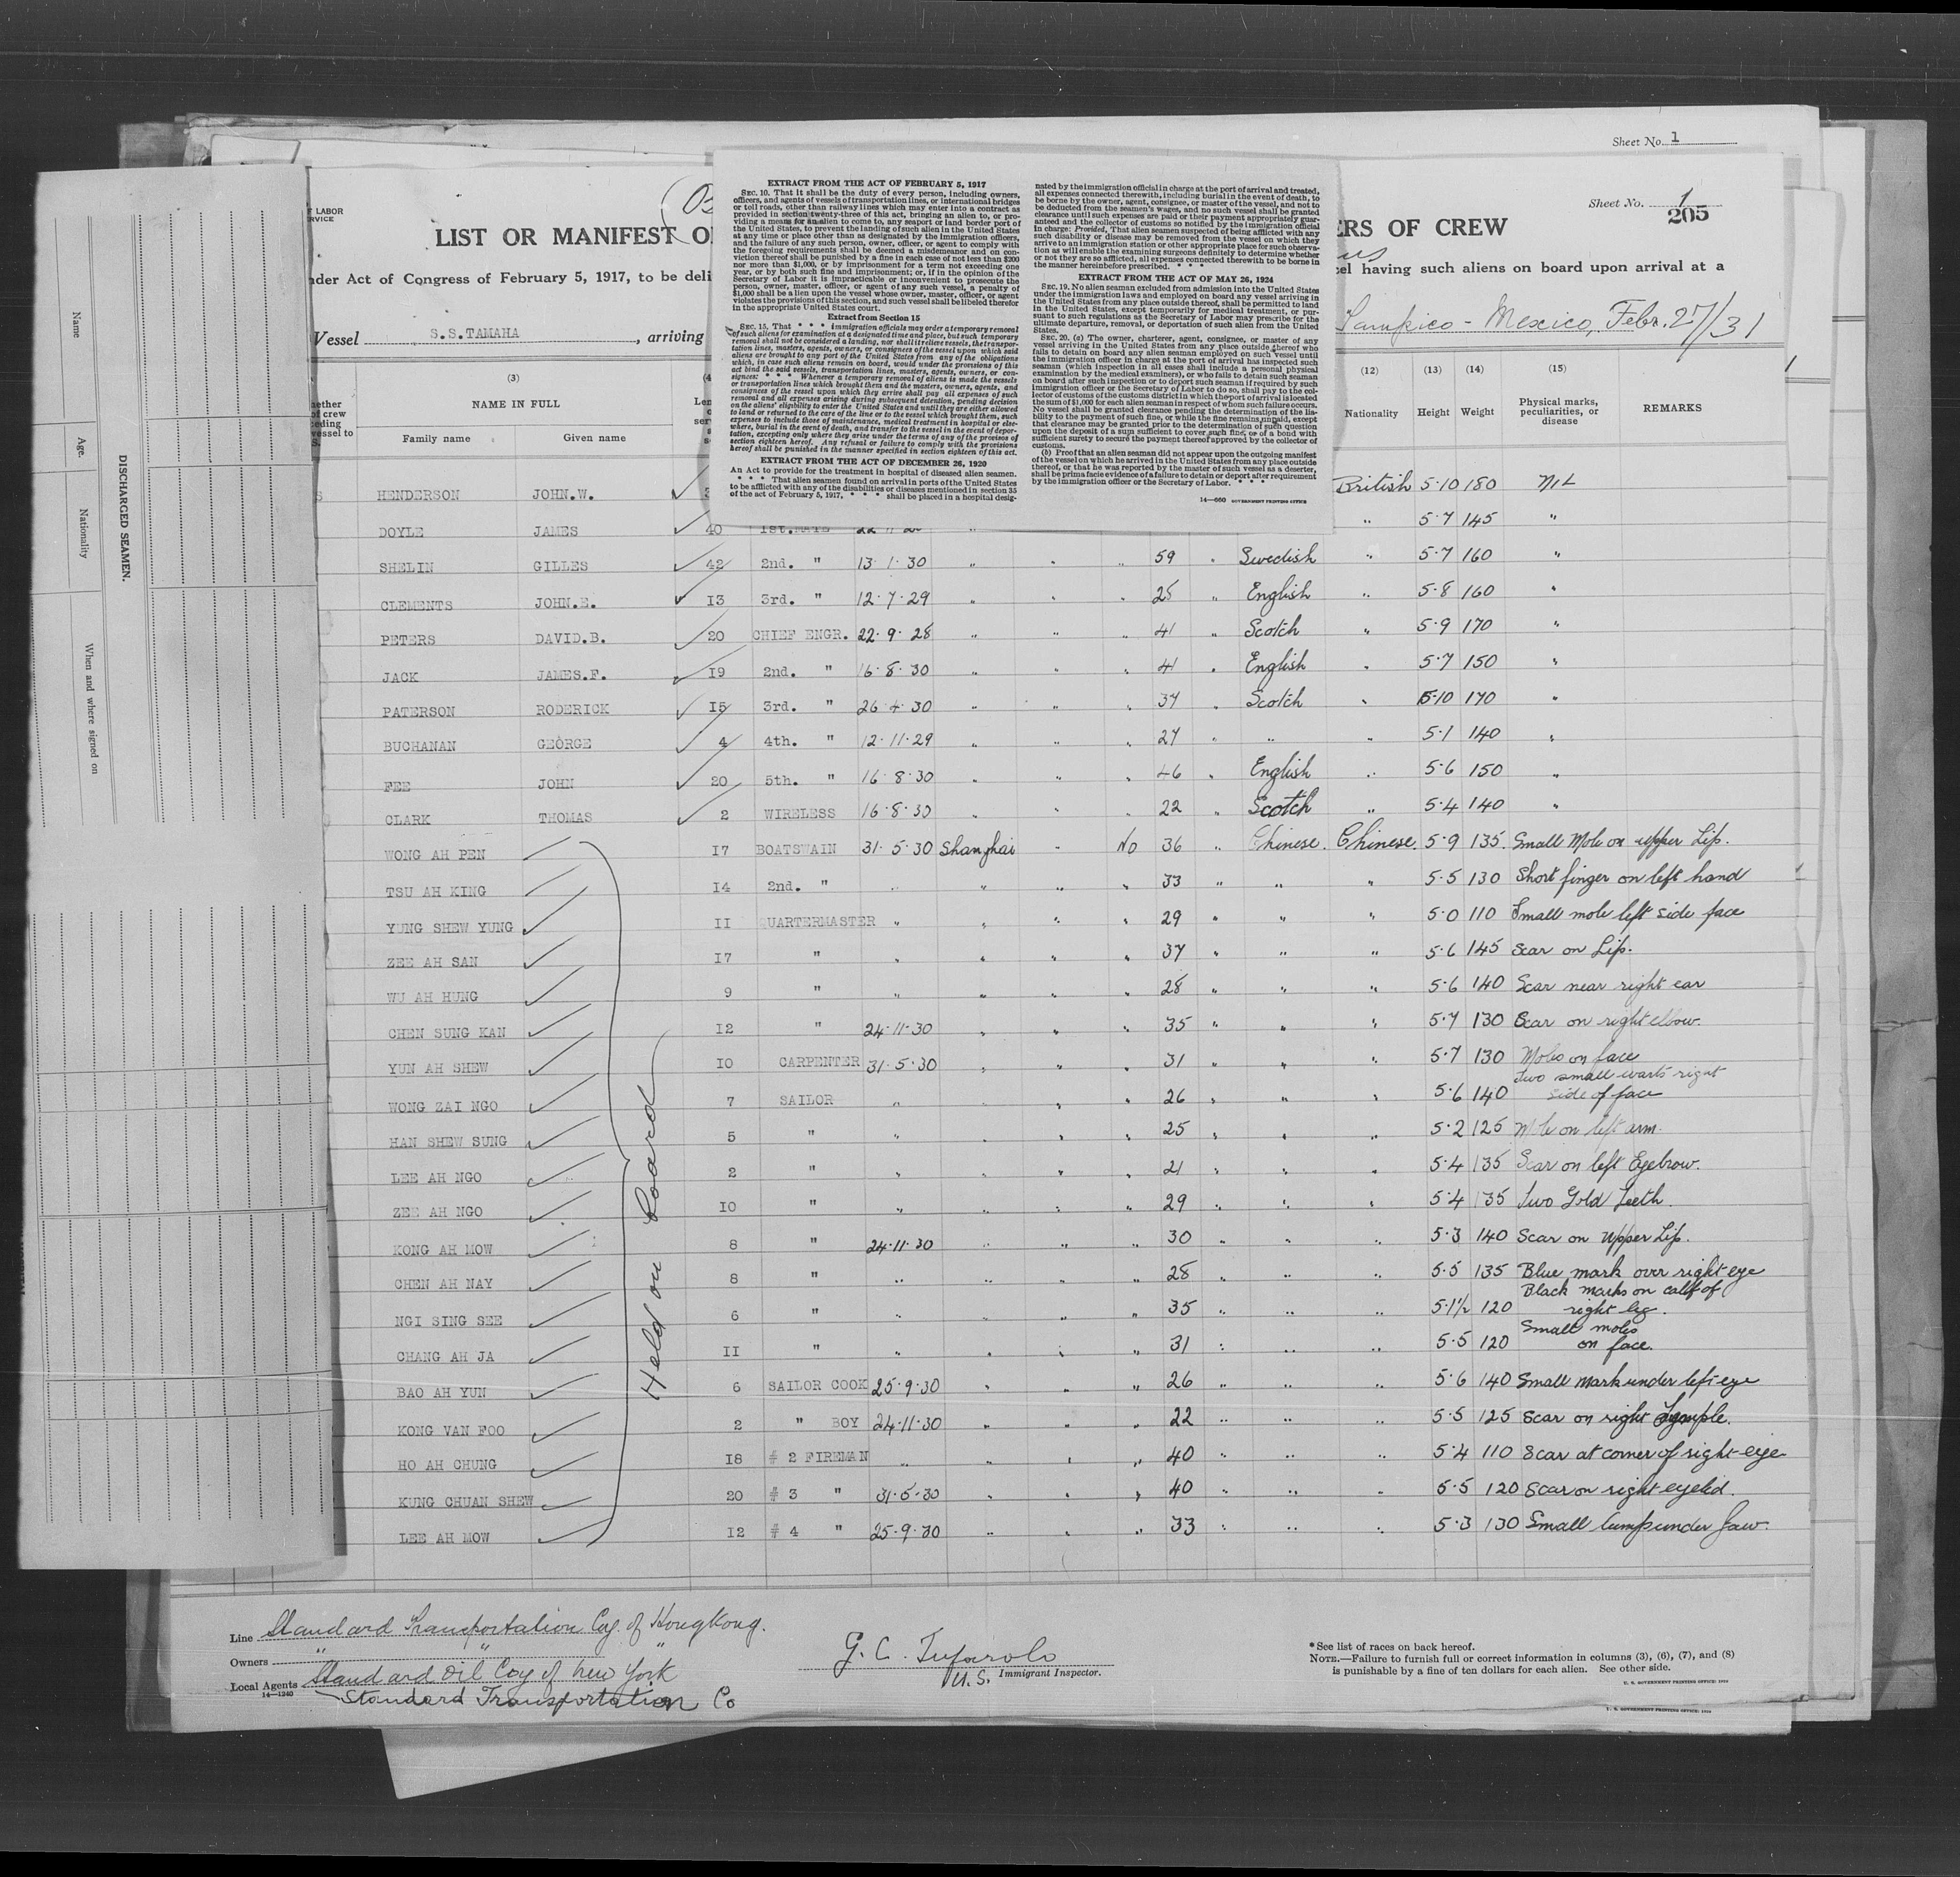 Sheet No. 1
Sheet No. 1
205
F LABOR
RVICE
LIST OR MANIFEST O
ERS OF CREW
nder Act of Congress of February 5, 1917, to be deli
el having such aliens on board upon arrival at a
Vessel S.S.TAMAHA, arriving
Tampico - Mexico, Febr. 27/31
EXTRACT FROM THE ACT OF FEBRUARY 5, 1917
SEC. 10. That it shall be the duty of every person, including owners,
officers, and agents of vessels of transportation lines, or international bridges
or toll roads, other than railway lines which may enter into a contract as
provided in section twenty-three of this act, bringing an alien to, or pro-
viding a means for an alien to come to, any seaport or land border port of
the United States, to prevent the landing of such alien in the United States
at any time or place other than as designated by the immigration officers,
and the failure of any such person, owner, officer, or agent to comply with
the foregoing requirements shall be deemed a misdemeanor and on con-
viction thereof shall be punished by a fine in each case of not less than $200
nor more than $1,000, or by imprisonment for a term not exceeding one
year, or by both such fine and imprisonment; or, if in the opinion of the
Secretary of Labor it is impracticable or inconvenient to prosecute the
person, owner, master, officer, or agent of any such vessel, a penalty of
$1,000 shall be a lien upon the vessel whose owner, master, officer, or agent
violates the provisions of this section, and such vessel shall be libeled therefor
in the appropriate United States court.
Extract from Section 15
SEC. 15. That * * * immigration officials may order a temporary removal
of such aliens for examination at a designated time and place, but such temporary
removal shall not be considered a landing, nor shall it relieve vessels, the transpor-
tation lines, masters, agents, owners, or consignees of the vessel upon which said
aliens are brought to any port of the United States from any of the obligations
which, in case such aliens remain on board, would under the provisions of this
act bind the said vessels, transportation lines, masters, agents, owners, or con-
signees: * * * Whenever a temporary removal of aliens is made the vessels
or transportation lines which brought them and the masters, owners, agents, and
consignees of the vessel upon which they arrive shall pay all expenses of such
removal and all expenses arising during subsequent detention, pending decision
on the aliens' eligibility to enter the United States and until they are either allowed
to land or returned to the care of the line or to the vessel which brought them, such
expenses to include those of maintenance, medical treatment in hospital or else-
where, burial in the event of death, and transfer to the vessel in the event of depor-
tation, excepting only where they arise under the terms of any of the provisos of
section eighteen hereof. Any refusal or failure to comply with the provisions
hereof shall be punished in the manner specified in section eighteen of this act.
EXTRACT FROM THE ACT OF DECEMBER 26, 1920
An Act to provide for the treatment in hospital of diseased alien seamen.
* * * That alien seamen found on arrival in ports of the United States
to be afflicted with any of the disabilities or diseases mentioned in section 35
of the act of February 5, 1917, * * * shall be placed in a hospital desig-
nated by the immigration official in charge at the port of arrival and treated,
all expenses connected therewith, including burial in the event of death, to
be borne by the owner, agent, consignee, or master of the vessel, and not to
be deducted from the seamen's wages, and no such vessel shall be granted
clearance until such expenses are paid or their payment appropriately guar-
anteed and the collector of customs so notified by the immigration official
in charge: Provided, That alien seamen suspected of being afflicted with any
such disability or disease may be removed from the vessel on which they
arrive to an immigration station or other appropriate place for such observa-
tion as will enable the examining surgeons definitely to determine whether
or not they are so afflicted, all expenses connected therewith to be borne in
the manner hereinbefore prescribed. * * *
EXTRACT FROM THE ACT OF MAY 26, 1924
SEC. 19. No alien seaman excluded from admission into the United States
under the immigration laws and employed on board any vessel arriving in
the United States from any place outside thereof, shall be permitted to land
in the United States, except temporarily for medical treatment, or pur-
suant to such regulations as the Secretary of Labor may prescribe for the
ultimate departure, removal, or deportation of such alien from the United
States.
SEC. 20. (a) The owner, charterer, agent, consignee, or master of any
vessel arriving in the United States from any place outside thereof who
fails to detain on board any alien seaman employed on such vessel until
the immigration officer in charge at the port of arrival has inspected such
seaman (which inspection in all cases shall include a personal physical
examination by the medical examiners), or who fails to detain such seaman
on board after such inspection or to deport such seaman if required by such
immigration officer or the Secretary of Labor to do so, shall pay to the col-
lector of customs of the customs district in which the port of arrival is located
the sum of $1,000 for each alien seaman in respect of whom such failure occurs.
No vessel shall be granted clearance pending the determination of the lia-
bility to the payment of such fine, or while the fine remains unpaid, except
that clearance may be granted prior to the determination of such question
upon the deposit of a sum sufficient to cover such fine, or of a bond with
sufficient surety to secure the payment thereof approved by the collector of
customs.
(b) Proof that an alien seaman did not appear upon the outgoing manifest
of the vessel on which he arrived in the United States from any place outside
thereof, or that he was reported by the master of such vessel as a deserter,
shall be prima facie evidence of a failure to detain or deport after requirement
by the immigration officer or the Secretary of Labor. * * *
14—680 GOVERNMENT PRINTING OFFICE
Name
Age.
Nationality
When and where signed on
DISCHARGED SEAMEN.
(3) (12) (13) (14) (15)
NAME IN FULL
Family name Given name Nationality Height Weight Physical marks, peculiarities, or disease REMARKS
HENDERSON JOHN.W. British 5·10 180 Nil
DOYLE JAMES 40 1st. MATE " 5·7 145 "
SHELIN GILLES 42 2nd. " 13·1·30 " " " 59 " Swedish " 5·7 160 "
CLEMENTS JOHN.E. 13 3rd. " 12·7·29 " " " 25 " English " 5·8 160 "
PETERS DAVID.B. 20 CHIEF ENGR. 22·9·28 " " " 41 " Scotch " 5·9 170 "
JACK JAMES.F. 19 2nd. " 16·8·30 " " " 41 " English " 5·7 150 "
PATERSON RODERICK 15 3rd. " 26·4·30 " " " 37 " Scotch " 5·10 170 "
BUCHANAN GEORGE 4 4th. " 12·11·29 " " " 27 " " " 5·1 140 "
FEE JOHN 20 5th. " 16·8·30 " " " 46 " English " 5·6 150 "
CLARK THOMAS 2 WIRELESS 16·8·30 " " " 22 " Scotch " 5·4 140 "
WONG AH PEN 17 BOATSWAIN 31·5·30 Shanghai " No 36 " Chinese. Chinese. 5·9 135. Small Mole on upper Lip.
TSU AH KING 14 2nd. " " " " " 33 " " " 5·5 130 Short finger on left hand
YUNG SHEW YUNG 11 QUARTERMASTER " " " " 29 " " " 5·0 110 Small mole left side face
ZEE AH SAN 17 " " " " " 37 " " " 5·6 145 Scar on Lip.
WU AH HUNG 9 " " " " " 28 " " " 5·6 140 Scar near right ear
CHEN SUNG KAN 12 " 24·11·30 " " " 35 " " " 5·7 130 Scar on right elbow.
YUN AH SHEW 10 CARPENTER 31·5·30 " " " 31 " " " 5·7 130 Moles on face
WONG ZAI NGO 7 SAILOR " " " " 26 " " " 5·6 140 Two small warts right side of face
HAN SHEW SUNG 5 " " " " " 25 " " " 5·2 125 Mole on left arm.
LEE AH NGO 2 " " " " " 21 " " " 5·4 135 Scar on left Eyebrow.
ZEE AH NGO 10 " " " " " 29 " " " 5·4 135 Two Gold Teeth.
KONG AH MOW 8 " 24·11·30 " " " 30 " " " 5·3 140 Scar on Upper Lip.
CHEN AH NAY 8 " " " " " 28 " " " 5·5 135 Blue mark over right eye
NGI SING SEE 6 " " " " " 35 " " " 5·1½ 120 Black marks on calf of right leg.
CHANG AH JA 11 " " " " " 31 " " " 5·5 120 Small moles on face.
BAO AH YUN 6 SAILOR COOK 25·9·30 " " " 26 " " " 5·6 140 Small mark under left eye
KONG VAN FOO 2 " BOY 24·11·30 " " " 22 " " " 5·5 125 Scar on right Temple.
HO AH CHUNG 18 # 2 FIREMAN " " " " 40 " " " 5·4 110 Scar at corner of right eye
KUNG CHUAN SHEW 20 # 3 " 31·5·30 " " " 40 " " " 5·5 120 Scar on right eyelid.
LEE AH MOW 12 # 4 " 25·9·30 " " " 33 " " " 5·3 130 Small lump under Jaw.
Held on board
Line Standard Transportation Coy. of Hongkong.
Owners " " "
Local Agents Standard Oil Coy of New York
14—1240
Standard Transportation Co
G. C. Tufarolo
U.S. Immigrant Inspector.
*See list of races on back hereof.
NOTE.—Failure to furnish full or correct information in columns (3), (6), (7), and (8)
is punishable by a fine of ten dollars for each alien. See other side.
U. S. GOVERNMENT PRINTING OFFICE: 1930
U. S. GOVERNMENT PRINTING OFFICE: 1930